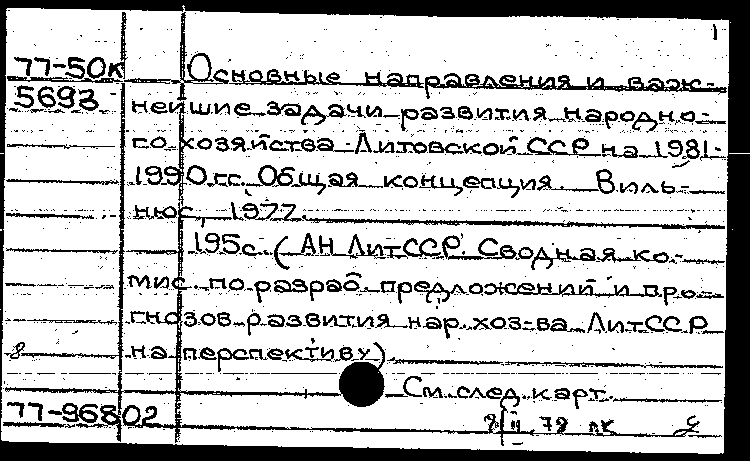 1
77-50к Основные направления и важ-
5693 нейшие задачи развития народно-
го хозяйства Литовской ССР на 1981-
1990 гг. Общая концепция. Виль-
нюс, 1977.
195с. (АН ЛитССР. Сводная ко-
мис. по разраб. предложений и про-
гнозов развития нар. хоз-ва ЛитССР
8 на перспективу).
См. след. карт.
77-96802
8/II 78 лк